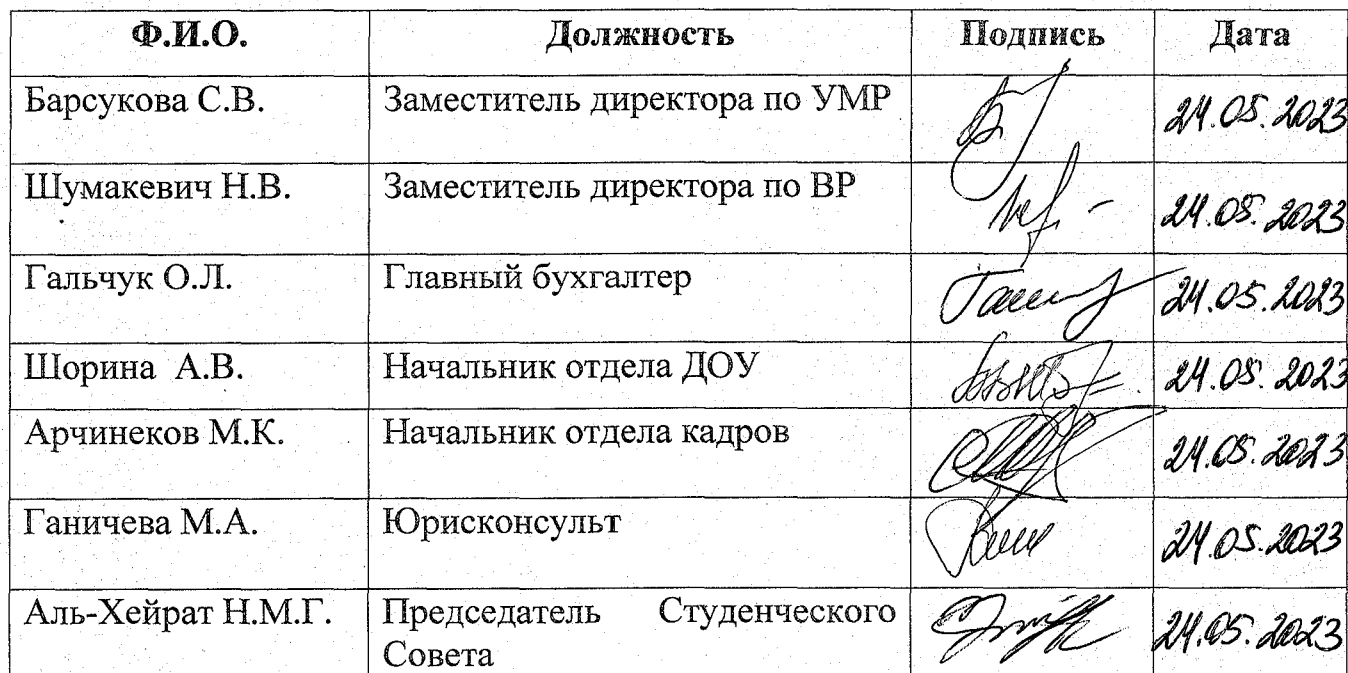 Ф.И.О. Должность Подпись Дата
Барсукова С.В. Заместитель директора по УМР 24.05.2023
Шумакевич Н.В. Заместитель директора по ВР 24.05.2023
Гальчук О.Л. Главный бухгалтер 24.05.2023
Шорина А.В. Начальник отдела ДОУ 24.05.2023
Арчинеков М.К. Начальник отдела кадров 24.05.2023
Ганичева М.А. Юрисконсульт 24.05.2023
Аль-Хейрат Н.М.Г. Председатель Студенческого 24.05.2023
Совета